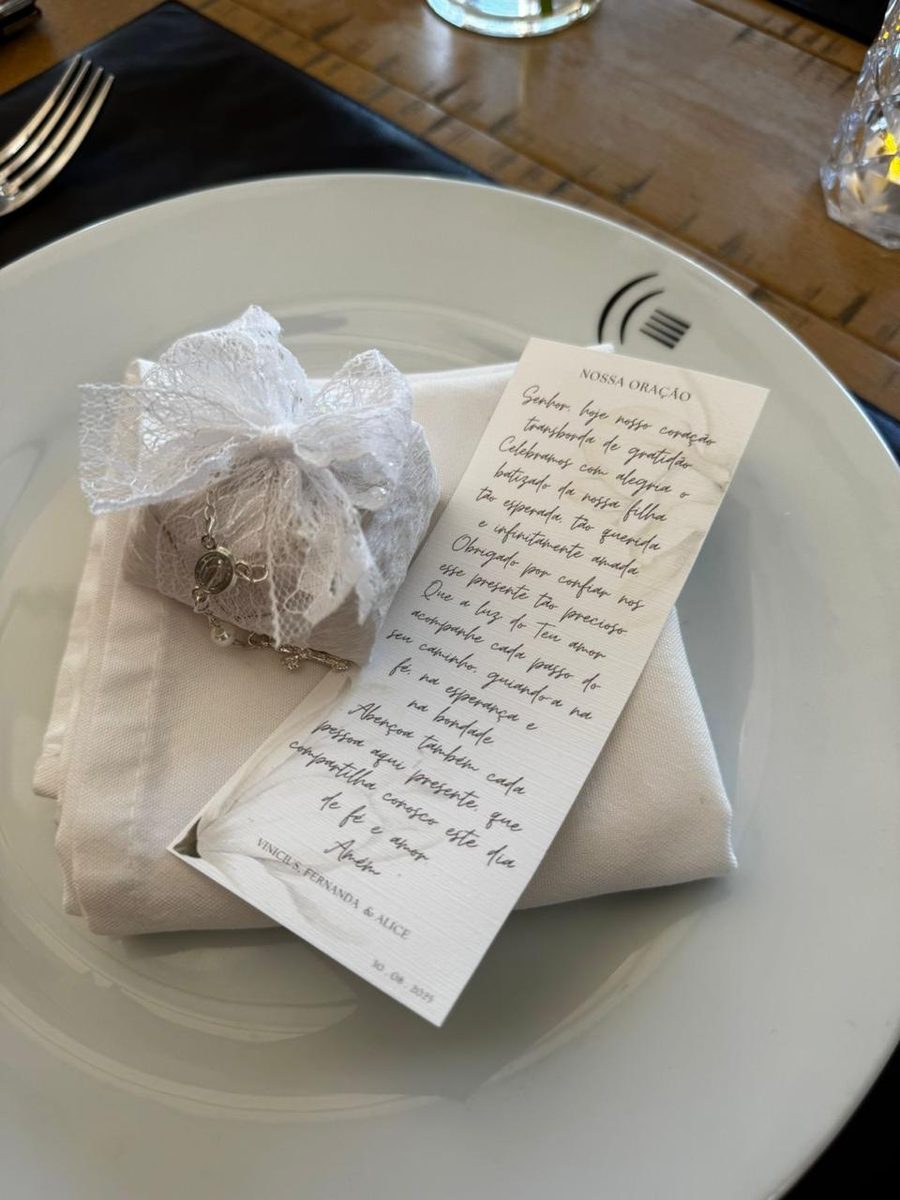 NOSSA ORAÇÃO
Senhor, hoje nosso coração
transborda de gratidão
Celebramos com alegria o
batizado da nossa filha
tão esperada, tão querida
e infinitamente amada
Obrigado por confiar nos
esse presente tão precioso
Que a luz do Teu amor
acompanhe cada passo do
seu caminho, guiando-a na
fé, na esperança e
na bondade
Abençoa também cada
pessoa aqui presente, que
compartilha conosco este dia
de fé e amor
Amém
VINICIUS, FERNANDA & ALICE
30 . 08 . 2025